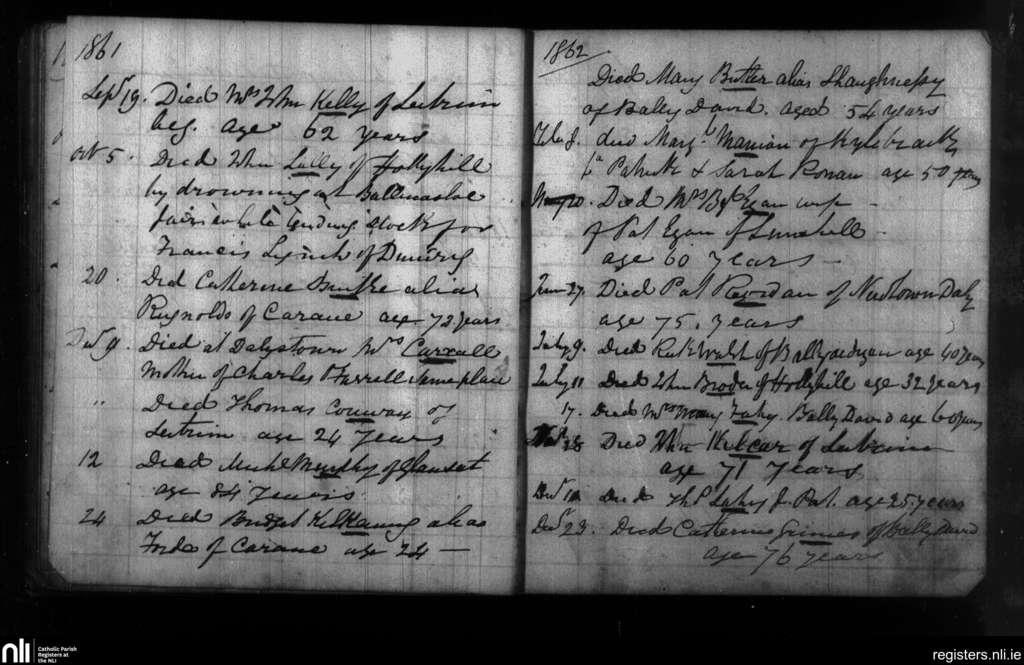 1861
Sepr 19. Died Mrs John Kelly of Leitrim
beg. age 62 years
Oct 5. Died John Lally of Hollyhill
by drowning at Ballinasloe
fair while tending stock for
Francis Lynch of Duniry
20. Died Catherine Burke alias
Reynolds of Carane age 72 years
Decr 9. Died at Dalystown Mrs Carroll
Mother of Charles Farrell same place
" Died Thomas Conway of
Leitrim age 24 years
12 Died Michl Murphy of
age 84 years
24 Died Bridget Kilkenny alias
of Carane age 24 —
1862
Died Mary Butler alias Shaughnessy
of Bally David. aged 54 years
died Margt Manion of Kylebrack
to Patrick & Sarah age 50 years
Died Mrs Egan wife
of Pat Egan of
age 60 years —
June 27. Died Pat of Newtown Daly
age 75. years
July 9. Died Walsh of age 40 years
July 11 Died John Broder of Hollyhill age 32 years
17. Died Mrs Mary Fahy. Bally David age 60 years
28 Died John Kilcar of Leitrim
age 71 years
Decr Died Thos Fahy J. Pat. age 25. years
Decr 23. Died Catherine Grimes of Bally David
age 76 years
nli Catholic Parish
Registers at
the NLI
registers.nli.ie